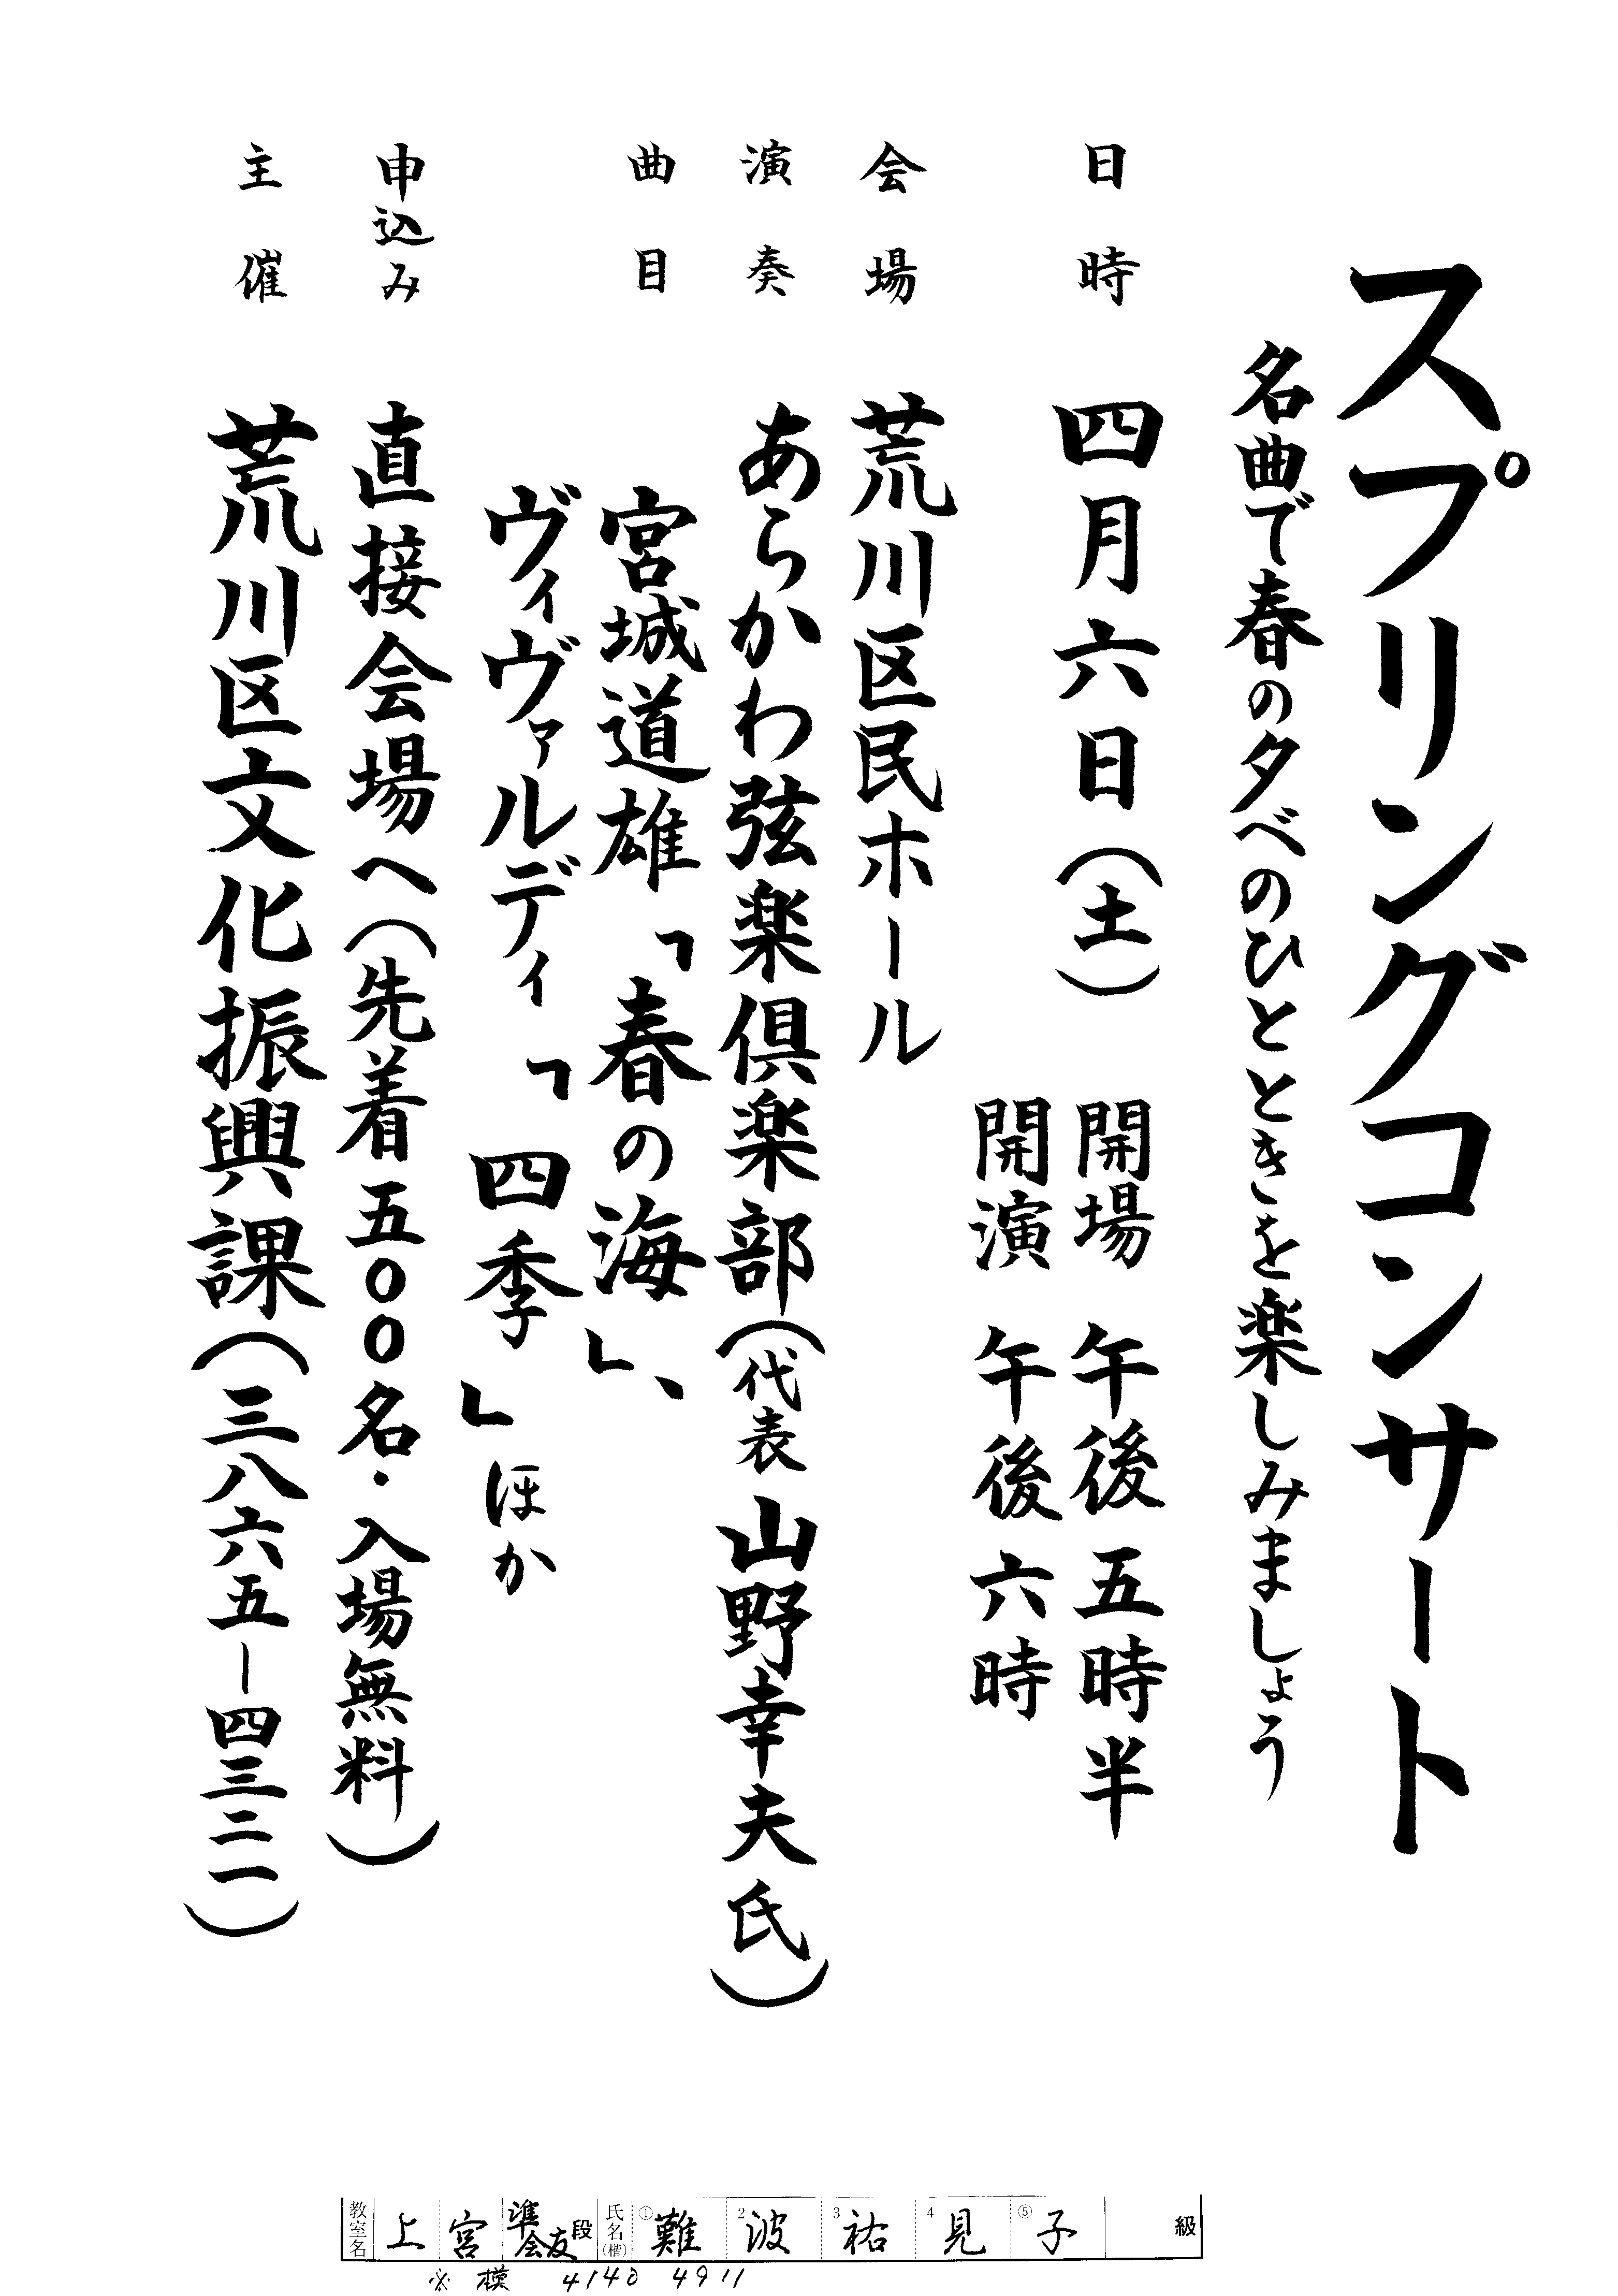 スプリングコンサート
名曲で春の夕べのひとときを楽しみましょう
日時 四月六日(土) 開場 午後五時半
開演 午後六時
会場 荒川区民ホール
演奏 あらかわ弦楽倶楽部(代表 山野幸夫氏)
曲目 宮城道雄「春の海」、
ヴィヴァルディ「四季」ほか
申込み 直接会場へ(先着五〇〇名・入場無料)
主催 荒川区文化振興課(三八六五ー四三二一)
教室名 上宮 準会友 段 氏名(楷) ①難 2波 3祐 4見 ⑤子 級
※ 模 4140 4911